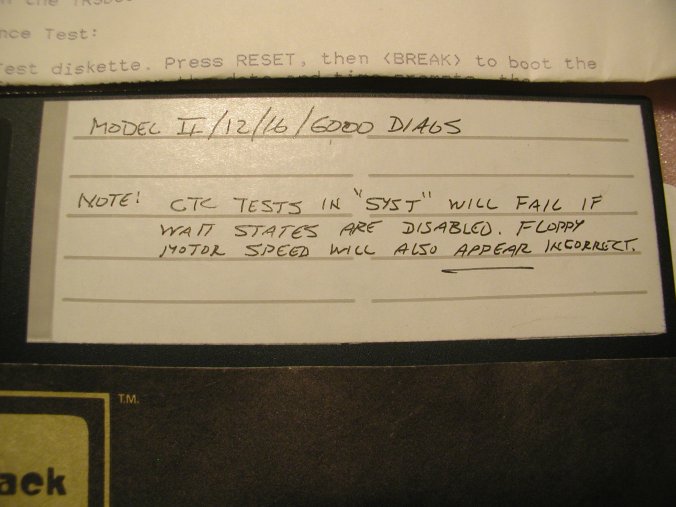 the TRSDO
nce Test:
Test diskette. Press RESET, then <BREAK> to boot the
the date and time prompts, the
MODEL II/12/16/6000 DIAGS
NOTE! CTC TESTS IN "SYST" WILL FAIL IF
WAIT STATES ARE DISABLED. FLOPPY
MOTOR SPEED WILL ALSO APPEAR INCORRECT.
T.M.
ack